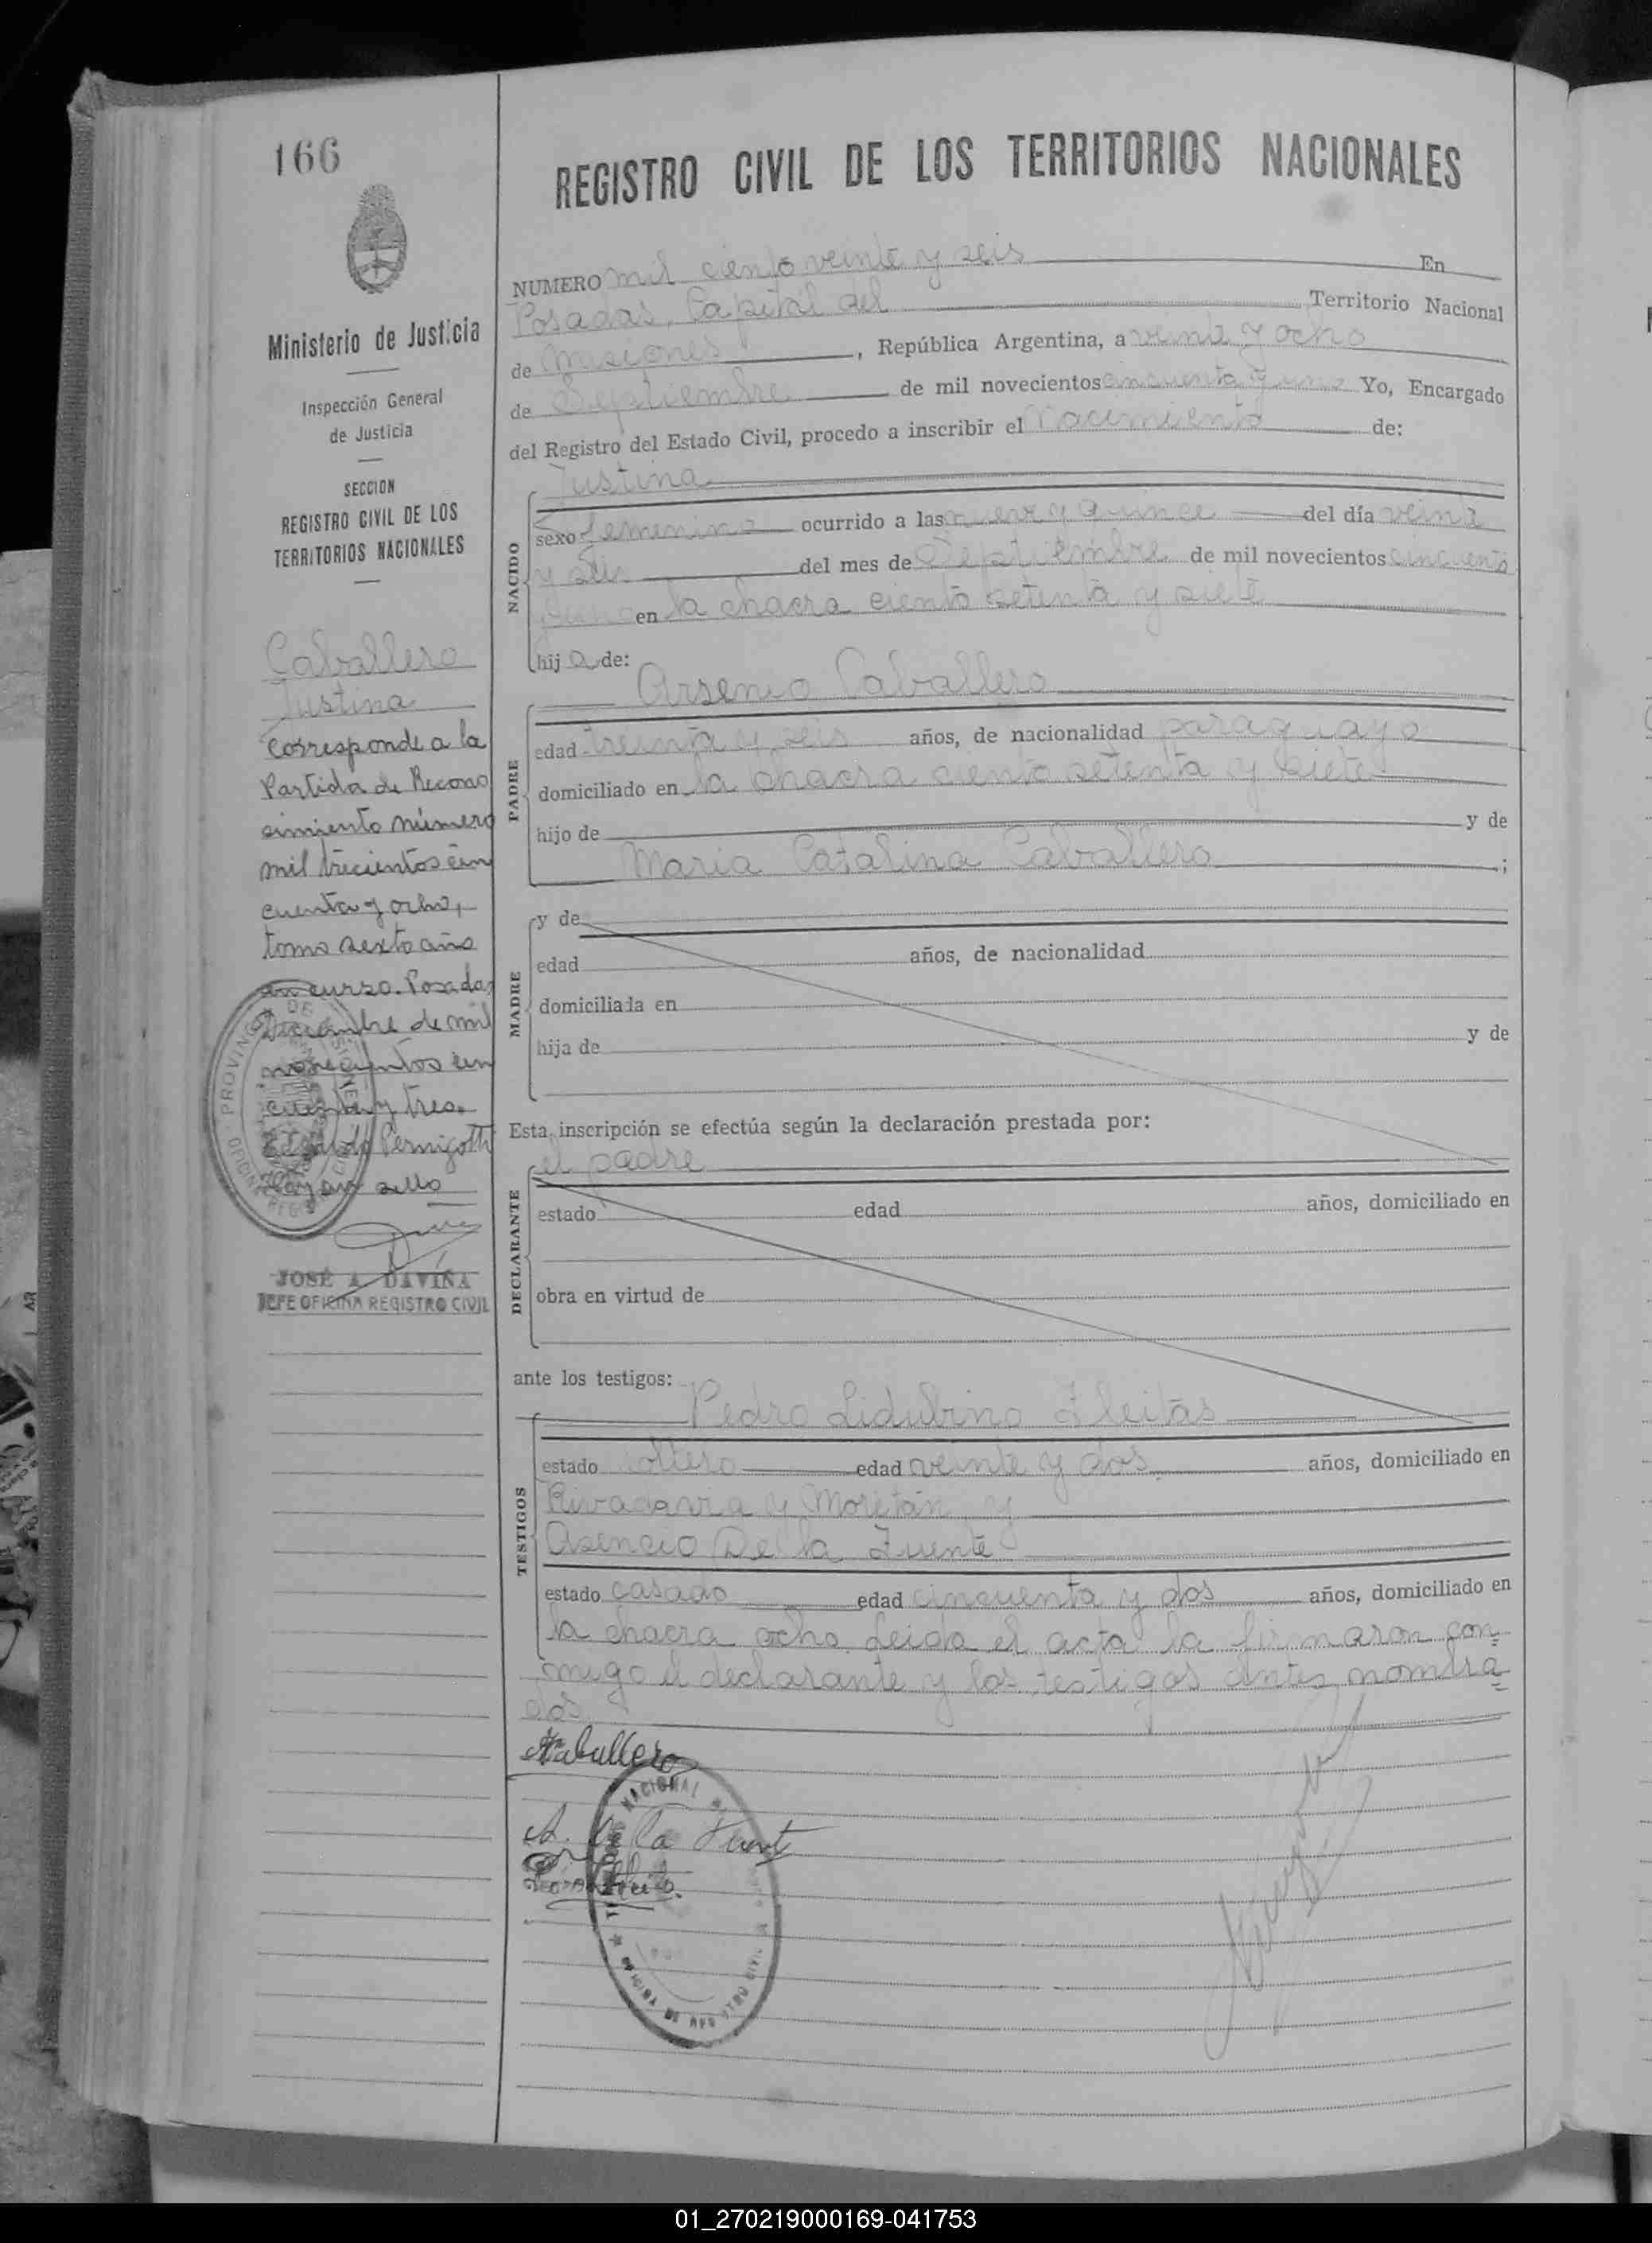 166
Ministerio de Justicia
Inspección General
de Justicia
SECCION
REGISTRO CIVIL DE LOS
TERRITORIOS NACIONALES
Caballero
Justina
Corresponde a la
Partida de Recono
cimiento número
mil trecientos cin
cuenta y ocho,
tomo sexto año
en curso. Posadas
Diciembre de mil
novecientos cin
cuenta y tres.
Pernigotti
Hay un sello
JOSÉ A. DAVIÑA
JEFE OFICINA REGISTRO CIVIL
REGISTRO CIVIL DE LOS TERRITORIOS NACIONALES
NUMERO mil ciento veinte y seis En
Posadas, Capital del Territorio Nacional
de Misiones, República Argentina, a veinte y ocho
de Septiembre de mil novecientos cincuenta y uno Yo, Encargado
del Registro del Estado Civil, procedo a inscribir el Nacimiento de:
NACIDO
Justina
sexo femenino ocurrido a las nueve y quince del día veinte
y seis del mes de Septiembre de mil novecientos cincuenta
y uno en la chacra ciento setenta y siete
hij a de:
PADRE
Arsenio Caballero
edad treinta y seis años, de nacionalidad paraguayo
domiciliado en la chacra ciento setenta y siete
hijo de y de
Maria Catalina Caballero ;
MADRE
y de
edad años, de nacionalidad
domiciliada en
hija de y de
Esta inscripción se efectúa según la declaración prestada por:
DECLARANTE
el padre
estado edad años, domiciliado en
obra en virtud de
ante los testigos:
TESTIGOS
Pedro Lidubino Fleitas
estado soltero edad veinte y dos años, domiciliado en
Rivadavia y Moritán, y
Asencio De la Fuente
estado casado edad cincuenta y dos años, domiciliado en
la chacra ocho. Leida el acta la firmaron con=
migo el declarante y los testigos antes nombra=
dos
ACaballero
A. de la Fuente
01_270219000169-041753